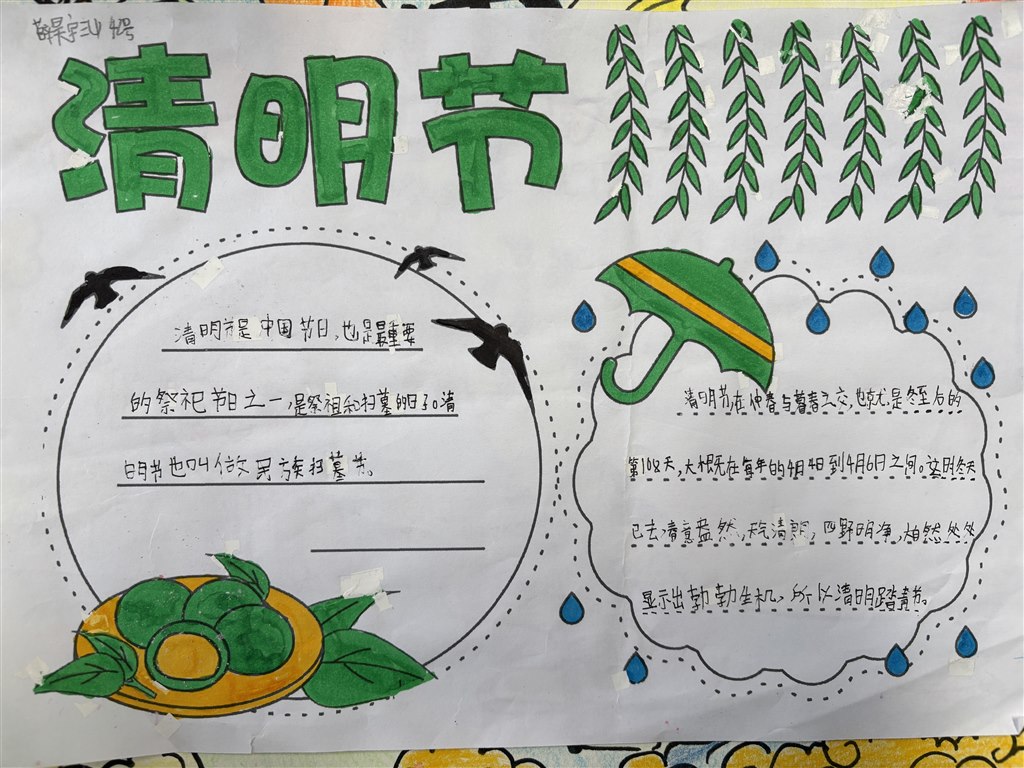 42号
清明节
清明节是中国节日,也是最重要
的祭祀节日之一,是祭祖和扫墓的日子。清
明节也叫做民族扫墓节。
清明节在仲春与暮春之交,也就是冬至后的
第108天,大概在每年的4月4日到4月6日之间。这时冬天
已去,春意盎然,天气清朗,四野明净,大自然处处
显示出勃勃生机。所以清明踏青节。